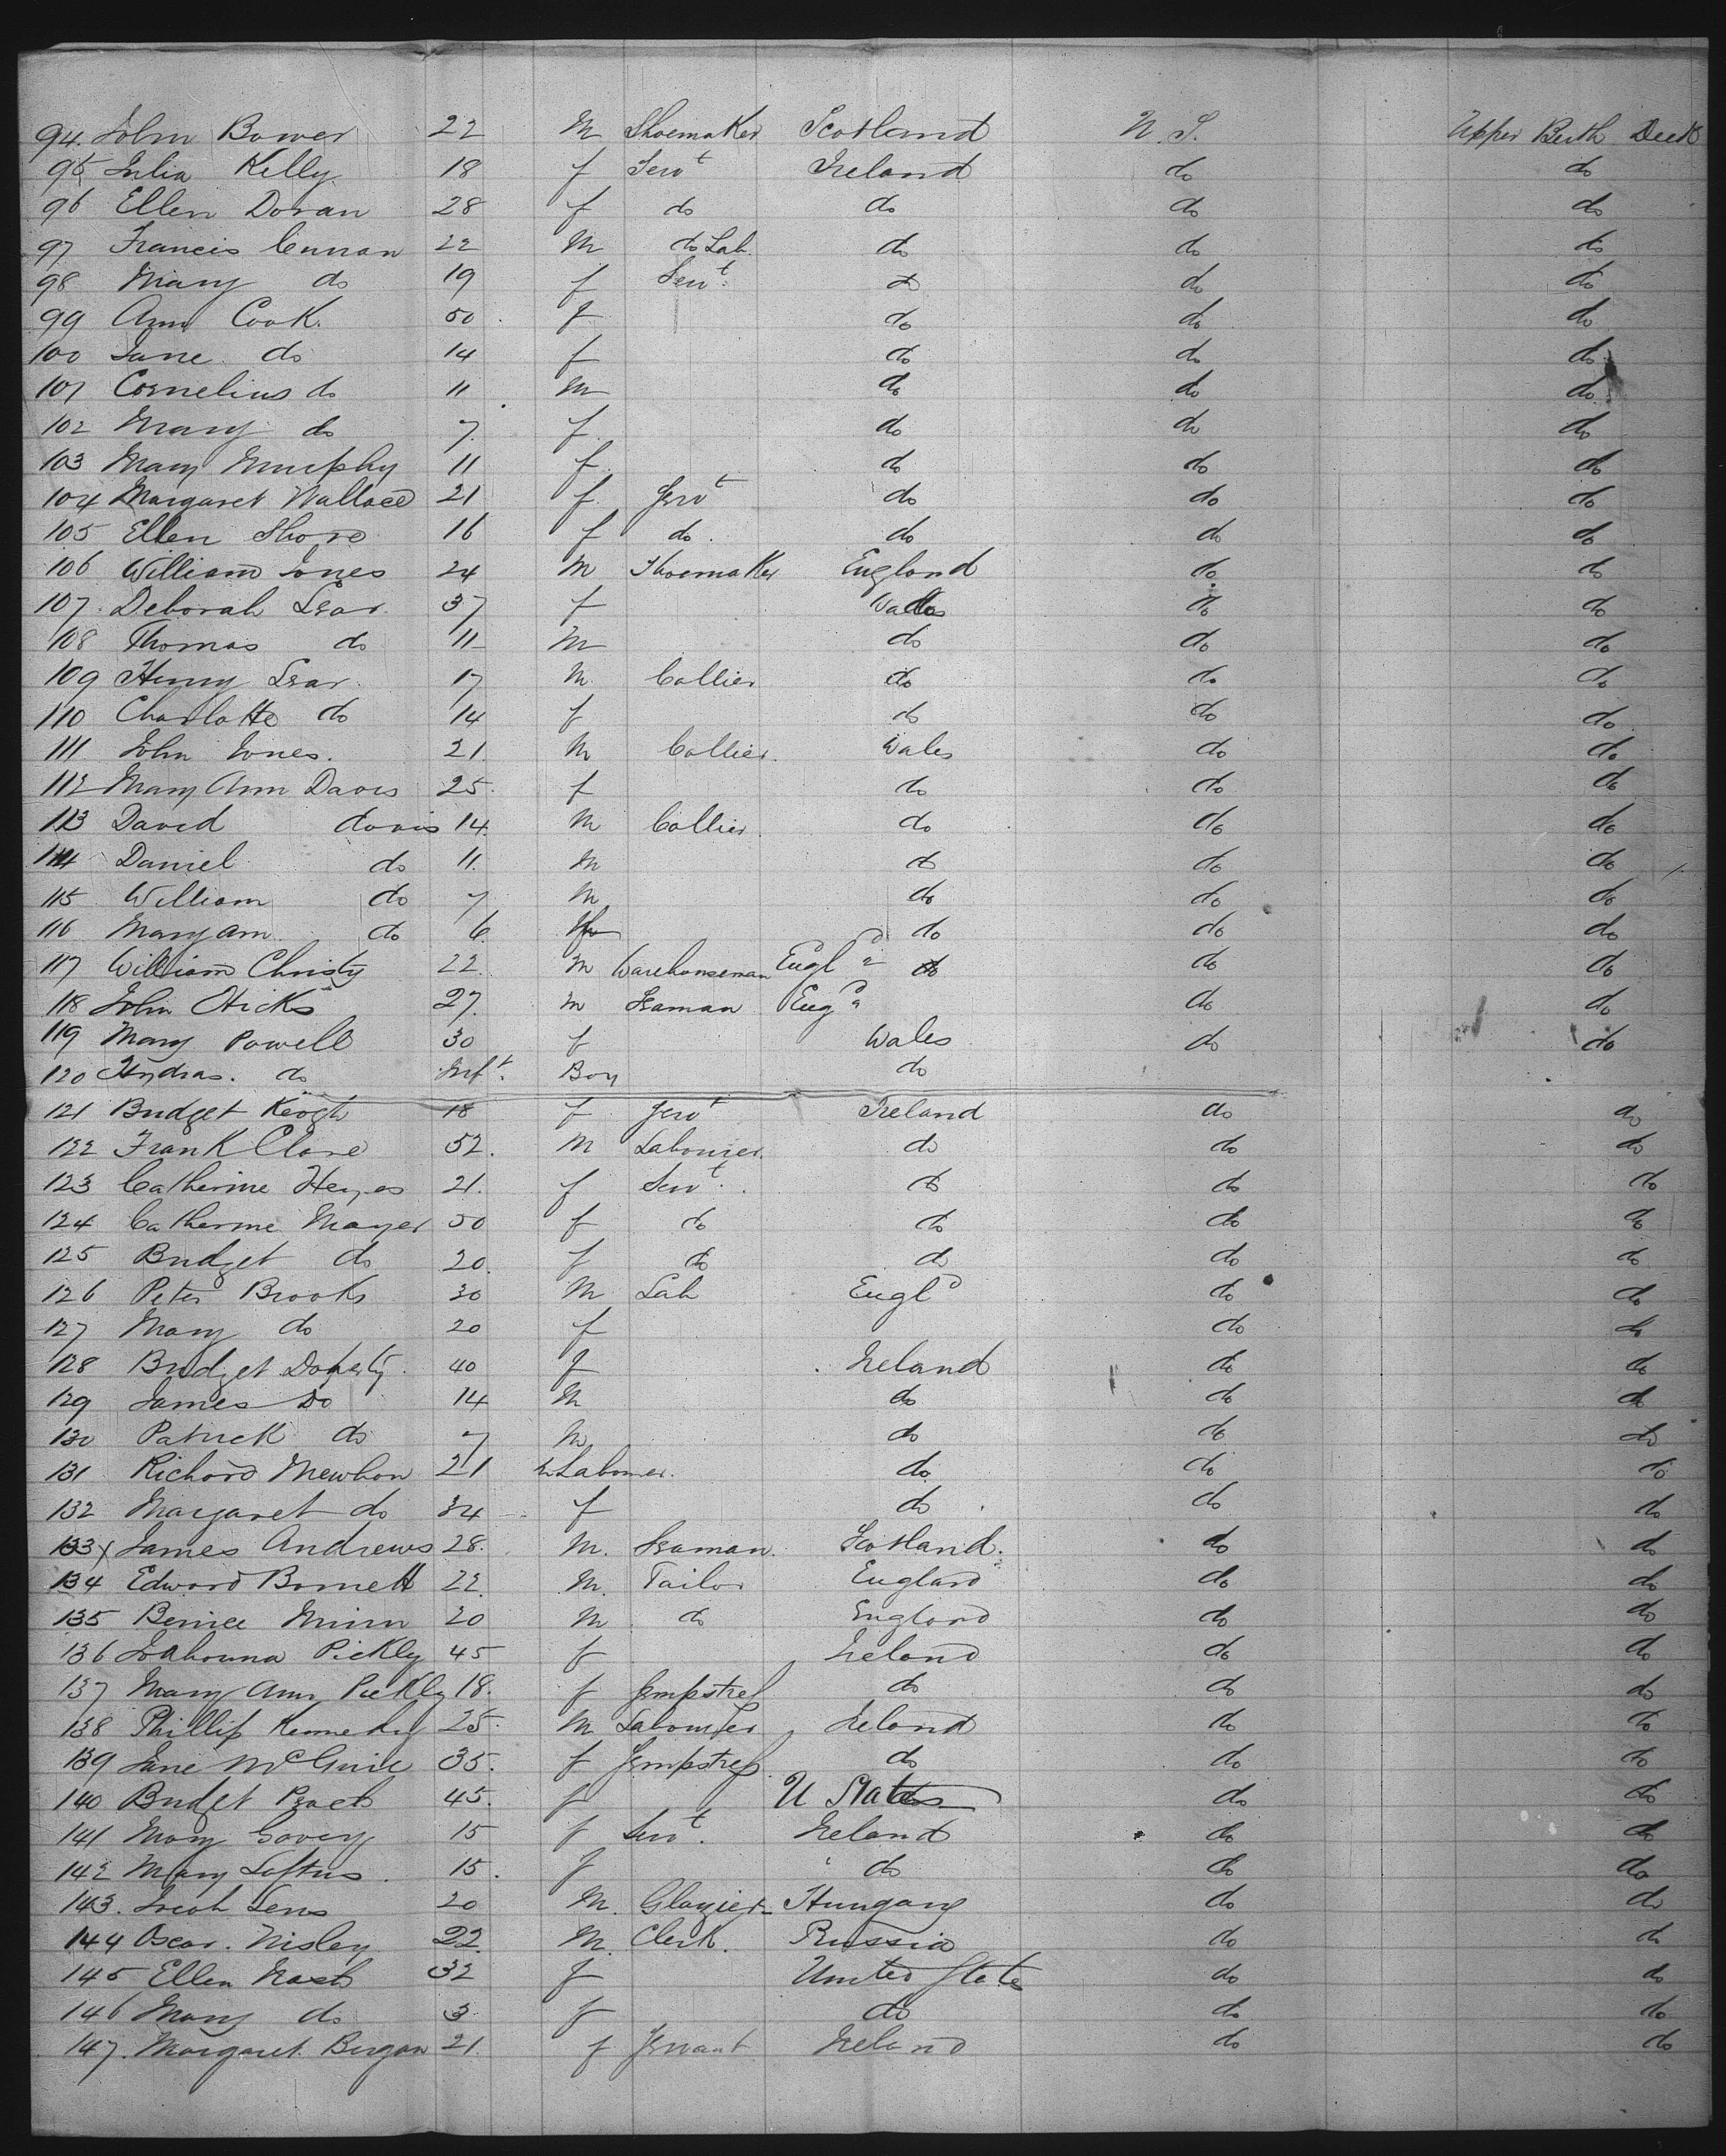 94. John Bower 22 M Shoemaker Scotland U. S. Upper Berth Deck
95 Julia Kelly 18 f Servt Ireland do do
96 Ellen Doran 28 f do do do do
97 Francis Curran 22 M do Lab. do do do
98 Mary do 19 f Servt. do do do
99 Ann Cook. 50 f do do do
100 Jane do 14 f do do do
101 Cornelius do 11 M do do do
102 Mary do 7. f. do do do
103 Mary Murphy 11 f. do do do
104 Margaret Wallace 21 f. Servt do do do
105 Ellen Shore 16 f do. do do do
106 William Jones 24 M Shoemaker England do do
107. Deborah Lear. 37 f Wales do do
108 Thomas do 11 M do do do
109 Henry Lear. 17 M. Collier do do do
110 Charlotte do 14 f do do do
111. John Jones. 21. M Collier. Wales do do
112 Mary Ann Davis 25. f do do do
113 David davis 14. M Collier. do do do
114 Daniel do 11. M do do do
115 William do 7 M do do do
116 Mary am do 6. f do do do
117 William Christy 22. M Warehouseman Engld do do do
118 John Hicks 27. M Seaman Engd do do
119 Mary Powell 30 f Wales do do
120 do Inft. Boy do
121 Bridget Keogh 18 f Servt Ireland do do
122 Frank Clare 52. M Labourer. do do do
123 Catherine Heyes 21. f Servt. do do do
124 Catherine Mayer 50 f do do do do
125 Bridget do 20. f do do do do
126 Peter Brooks 30 M Lab Engld do do
127 Mary do 20 f do do
128 Bridget Doherty. 40 f Ireland do do
129 James Do 14 M do do do
130 Patrick do 7 M do do do
131 Richard 21 M Labourer. do do do
132 Margaret do 34 f do do do
133 x James Andrews 28. M. Seaman. Scotland. do do
134 Edward 22. M. Tailor England do do
135 20 M do England do do
136 Pickly 45 f Ireland do do
137 Mary Ann Pickly 18. f Sempstress do do do
138 Phillip Kennedy 25. M Labourer Ireland do do
139 Jane McGuire 35. f Sempstress. do do do
140 Bridget 45. f U States do do
141 Mary 15 f Servt. Ireland do do
142 Mary Loftus. 15. f do do do
143. 20 M. Glazier Hungary do do
144 Oscar. Nisley 22. M. Clerk. Russia do do
145 Ellen Nash 32 f United States do do
146 Mary do 3 f do do do
147. Margaret Bergan 21. f Servant Ireland do do